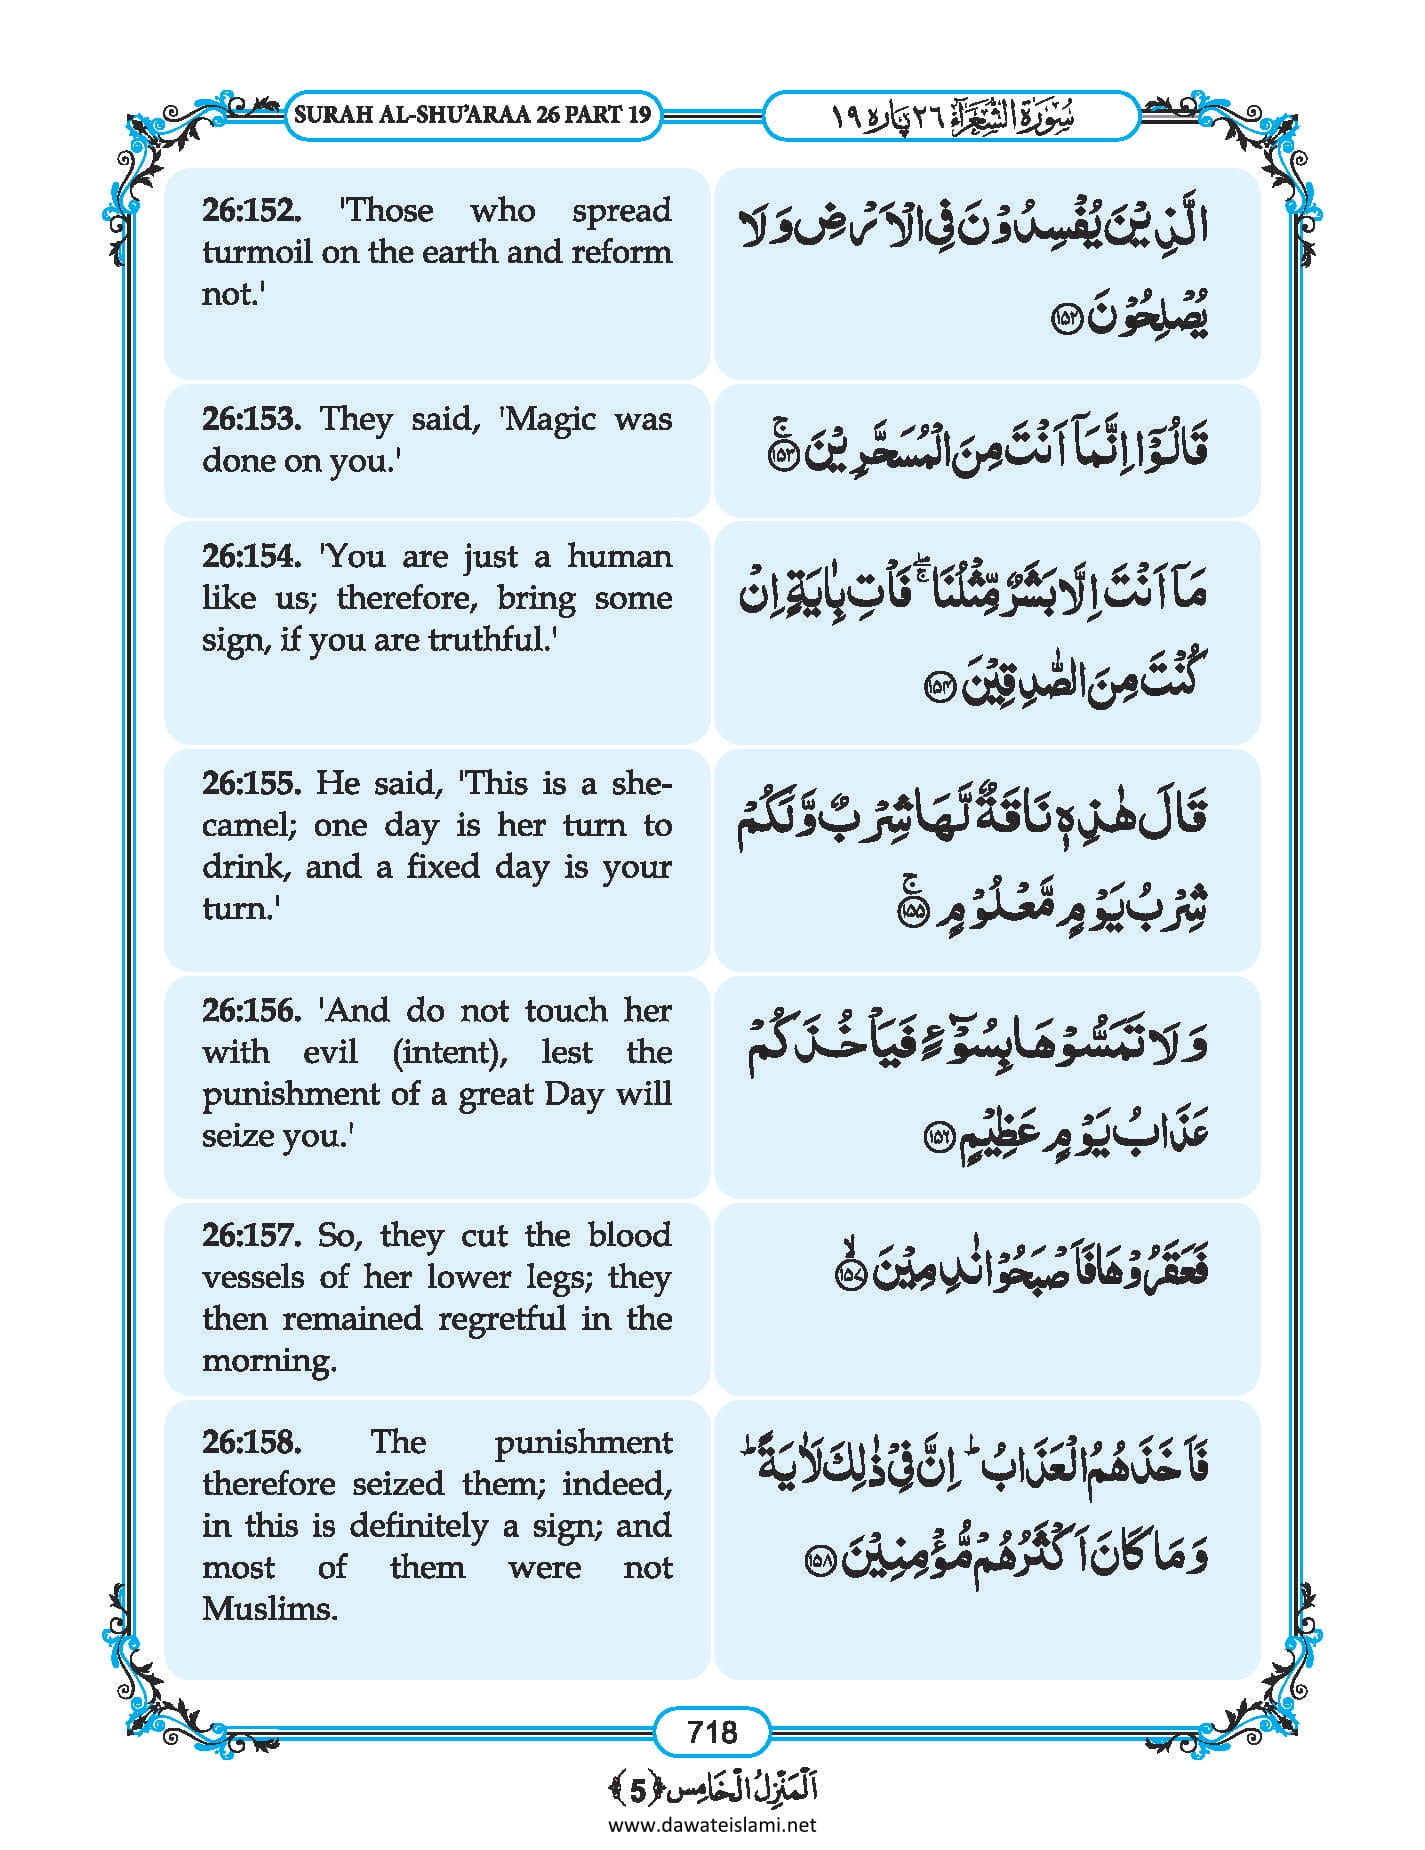 SURAH AL-SHU’ARAA 26 PART 19
سُوْرَةُ الشُّعَرَآء ٢٦ پاره ١٩
26:152. 'Those who spread
turmoil on the earth and reform
not.'
الَّذِيْنَ يُفْسِدُوْنَ فِي الْاَرْضِ وَ لَا
يُصْلِحُوْنَ ﴿۱۵۲﴾
26:153. They said, 'Magic was
done on you.'
قَالُوْۤا اِنَّمَاۤ اَنْتَ مِنَ الْمُسَحَّرِيْنَ ۚ﴿۱۵۳﴾
26:154. 'You are just a human
like us; therefore, bring some
sign, if you are truthful.'
مَاۤ اَنْتَ اِلَّا بَشَرٌ مِّثْلُنَا ۖۚ فَاْتِ بِاٰيَةٍ اِنْ
كُنْتَ مِنَ الصّٰدِقِيْنَ ﴿۱۵۴﴾
26:155. He said, 'This is a she-
camel; one day is her turn to
drink, and a fixed day is your
turn.'
قَالَ هٰذِهٖ نَاقَةٌ لَّهَا شِرْبٌ وَّ لَكُمْ
شِرْبُ يَوْمٍ مَّعْلُوْمٍ ۚ﴿۱۵۵﴾
26:156. 'And do not touch her
with evil (intent), lest the
punishment of a great Day will
seize you.'
وَ لَا تَمَسُّوْهَا بِسُوْٓءٍ فَيَاْخُذَكُمْ
عَذَابُ يَوْمٍ عَظِيْمٍ ﴿۱۵۶﴾
26:157. So, they cut the blood
vessels of her lower legs; they
then remained regretful in the
morning.
فَعَقَرُوْهَا فَاَصْبَحُوْا نٰدِمِيْنَ ۙ﴿۱۵۷﴾
26:158. The punishment
therefore seized them; indeed,
in this is definitely a sign; and
most of them were not
Muslims.
فَاَخَذَهُمُ الْعَذَابُ ؕ اِنَّ فِيْ ذٰلِكَ لَاٰيَةً ؕ
وَ مَا كَانَ اَكْثَرُهُمْ مُّؤْمِنِيْنَ ﴿۱۵۸﴾
718
اَلْمَنْزِلُ الْخَامِس ﴿5﴾
www.dawateislami.net